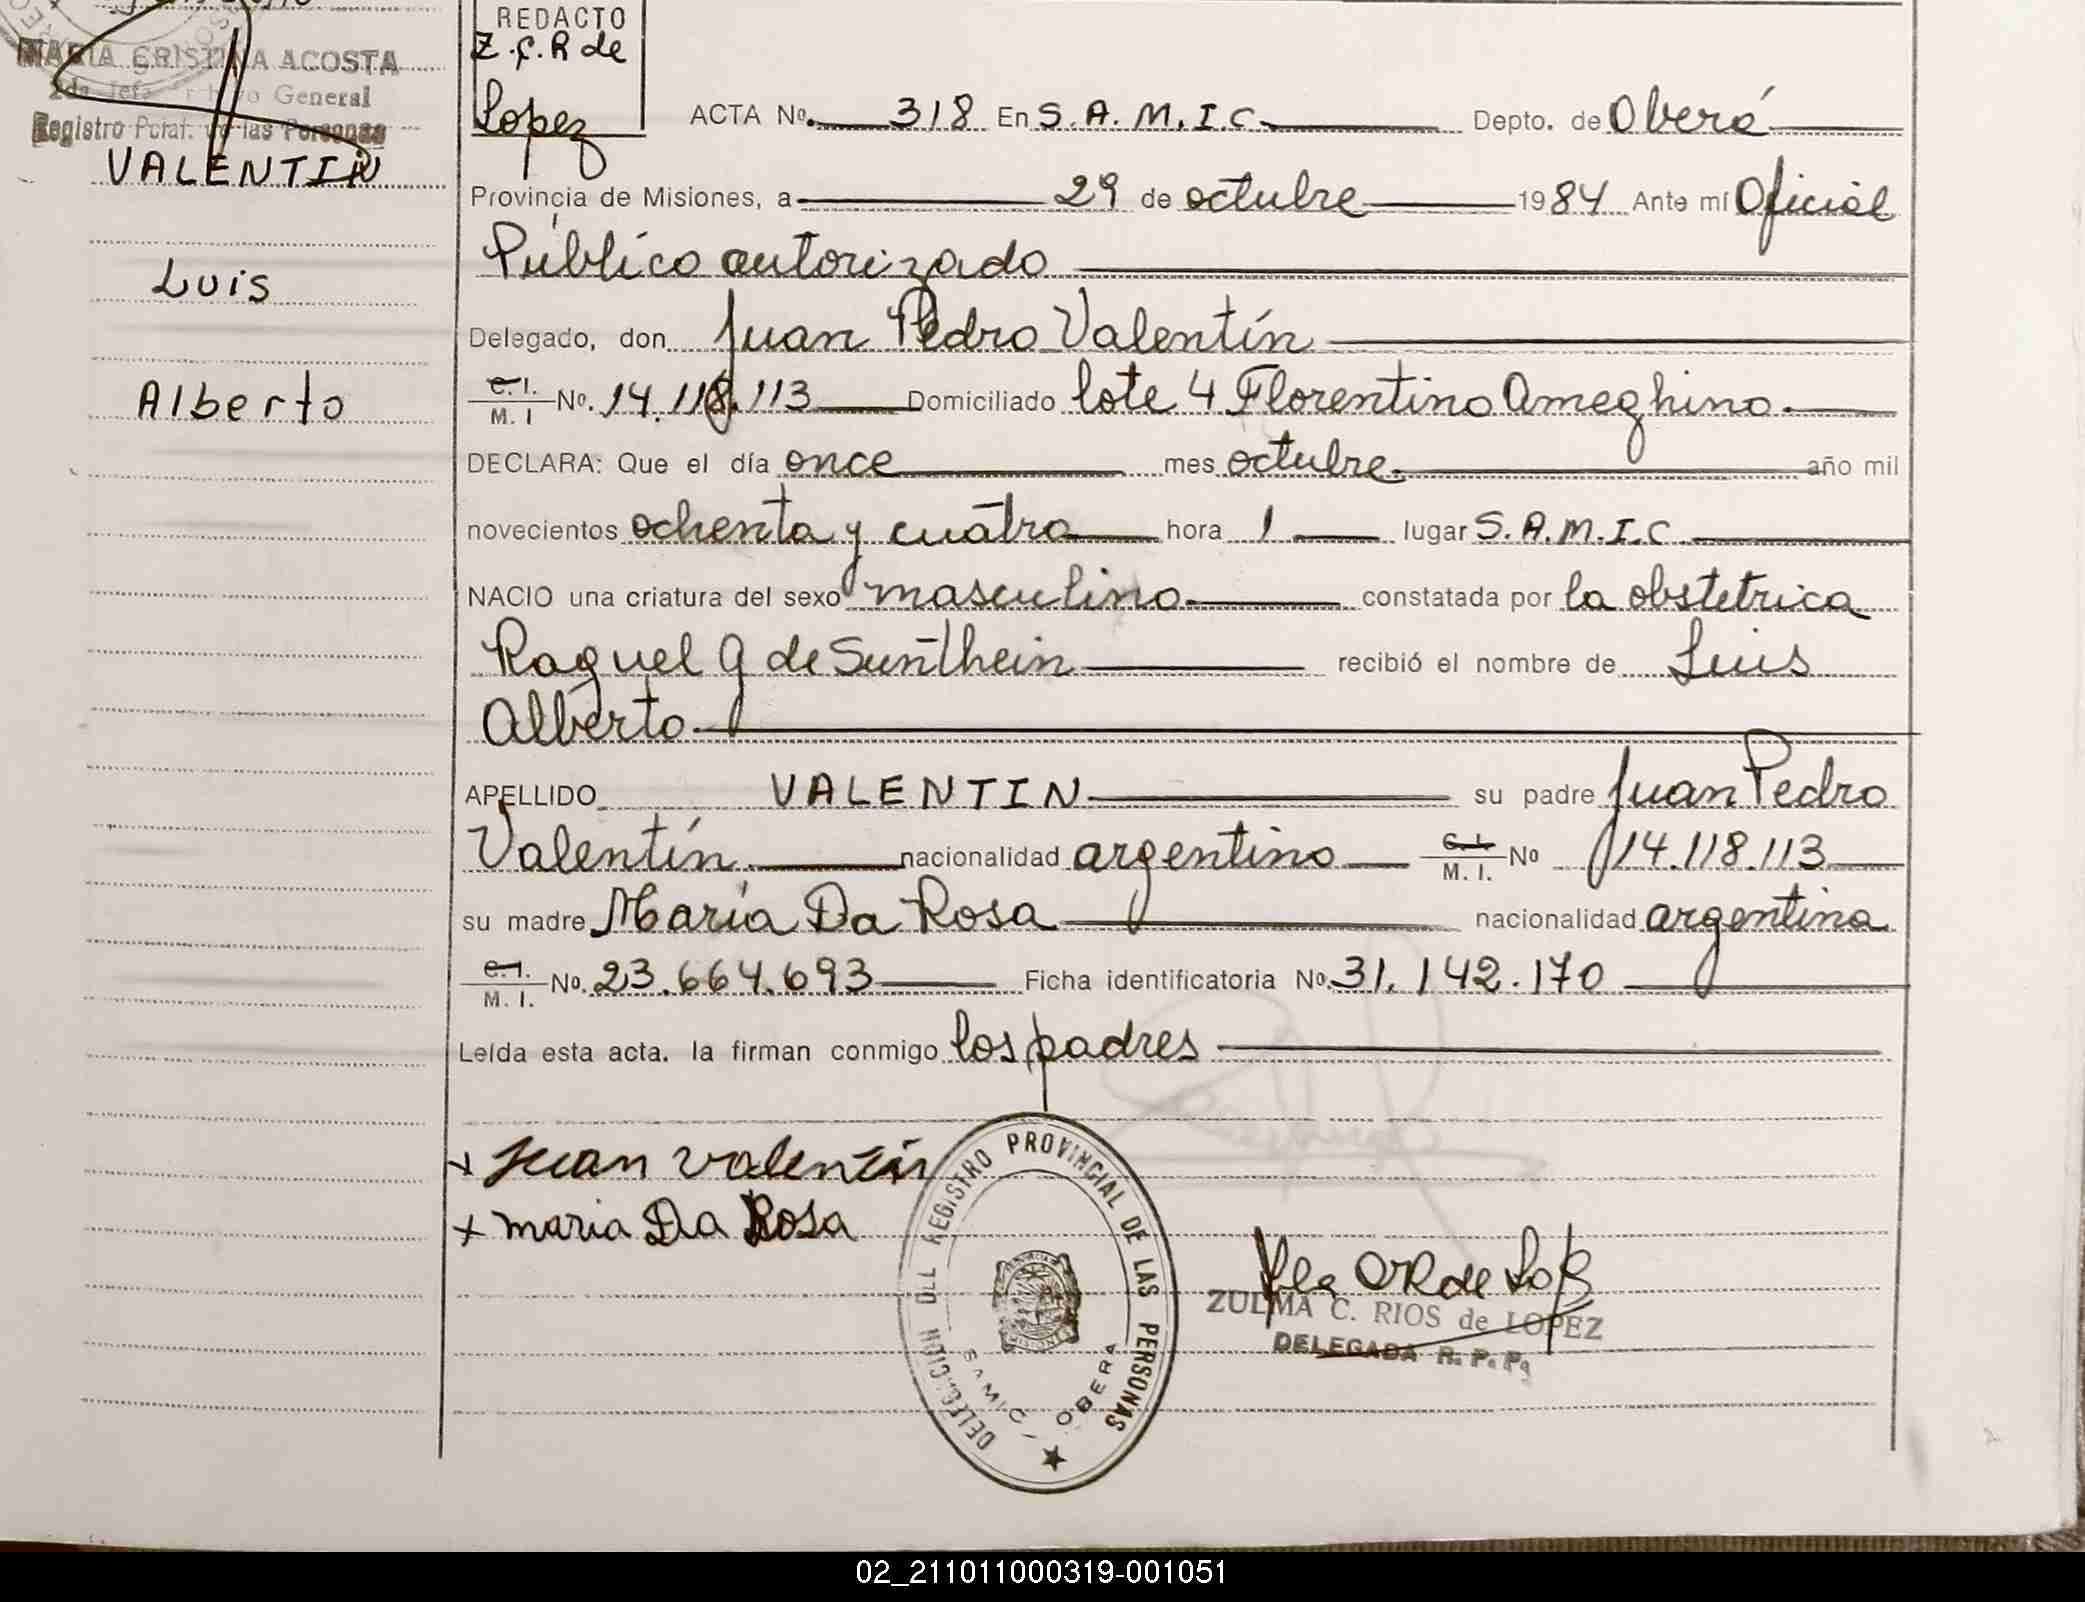 MARIA CRISTINA ACOSTA
2da Jefa Archivo General
Registro Pcial. de las Personas
VALENTIN
Luis
Alberto
REDACTO
Z.C.R de
Lopez
ACTA Nº. 318 En S.A.M.I.C. Depto. de Oberá
Provincia de Misiones, a 29 de octubre 1984 Ante mí Oficial
Público autorizado
Delegado, don Juan Pedro Valentín
C.I. / M.I Nº. 14.118.113 Domiciliado lote 4 Florentino Ameghino.
DECLARA: Que el día once mes octubre. año mil
novecientos ochenta y cuatro hora 1 lugar S.A.M.I.C.
NACIO una criatura del sexo masculino constatada por la obstetrica
Raquel G de Sunthein recibió el nombre de Luis
Alberto
APELLIDO VALENTIN su padre Juan Pedro
Valentín nacionalidad argentino C.I. / M.I. Nº 14.118.113
su madre María Da Rosa nacionalidad argentina
C.I. / M.I. Nº. 23.664.693 Ficha identificatoria Nº. 31.142.170
Leída esta acta. la firman conmigo los padres
x Juan Valentin
x maria Da Rosa
DELEGACION DEL REGISTRO PROVINCIAL DE LAS PERSONAS
SAMIC - OBERA
ZULMA C. RIOS de LOPEZ
DELEGADA R. P. P.
02_211011000319-001051